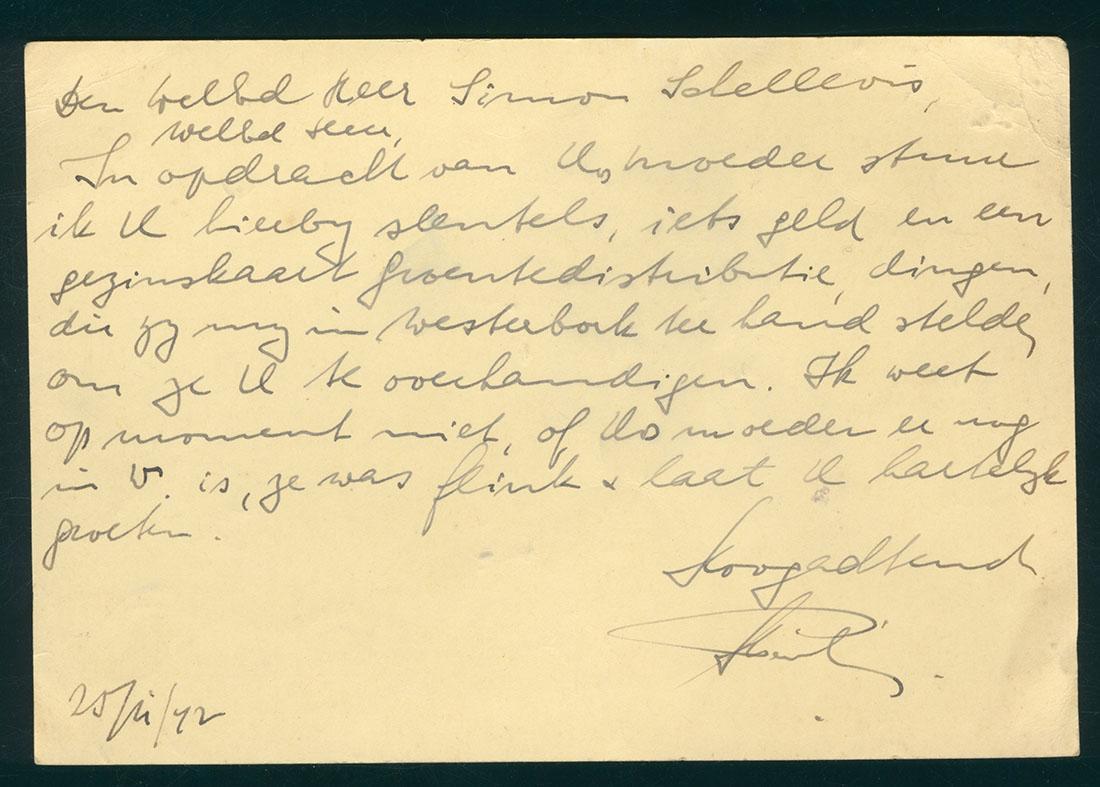 Den Welbd Heer Simon Schellevis,
Welbd Heer,
In opdracht van Us moeder stuur
ik U hierby sleutels, iets geld en een
gezinskaart Groentedistributie, dingen,
die zy my in Westerbork ter hand stelde,
om ze U te overhandigen. Ik weet
op moment niet, of Us moeder er nog
in W. is, ze was flink & laat U hartelyk
groeten.
Hoogachtend
25/11/42